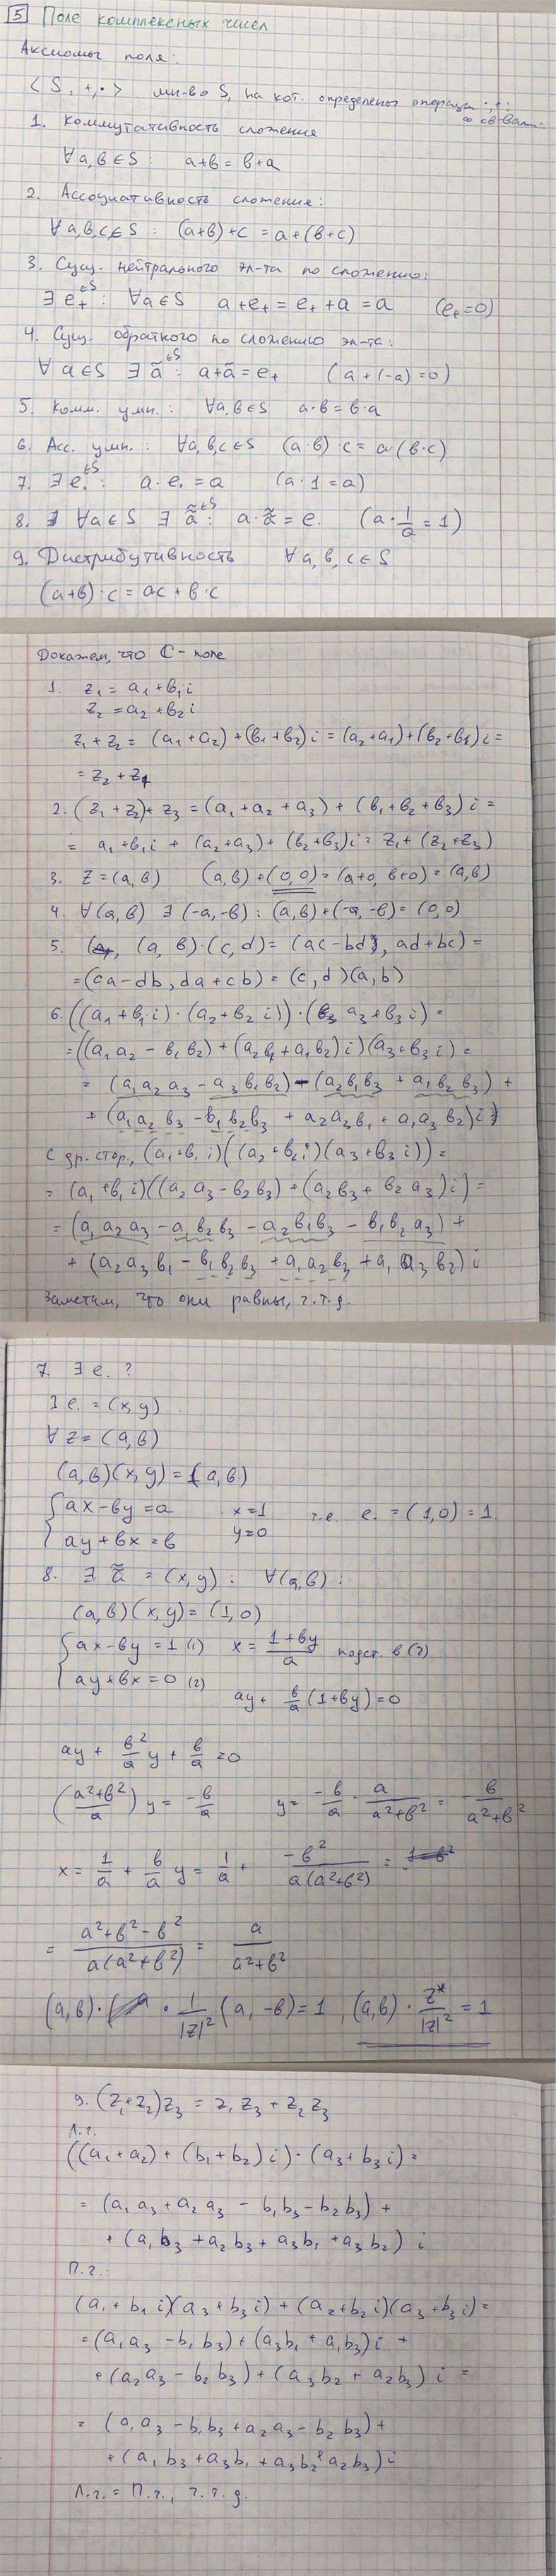 5 Поле комплексных чисел
Аксиомы поля:
< S, +, · > мн-во S, на кот. определены операции ·, + :
со св-вами:
1. Коммутативность сложения
∀a,b ∈ S : a+b = b+a
2. Ассоциативность сложения:
∀a,b,c ∈ S : (a+b)+c = a+(b+c)
3. Сущ. нейтрального эл-та по сложению:
∃ e₊ ∈S : ∀a∈S a+e₊ = e₊+a = a (e₊=0)
4. Сущ. обратного по сложению эл-та:
∀ a∈S ∃ ã ∈S : a+ã = e₊ (a+(-a)=0)
5. Комм. умн. : ∀a,b∈S a·b = b·a
6. Асс. умн. : ∀a,b,c∈S (a·b)·c = a·(b·c)
7. ∃ e. ∈S : a·e. = a (a·1=a)
8. ∀a∈S ∃ ã̃ ∈S : a·ã̃ = e. (a·1/a = 1)
9. Дистрибутивность ∀a,b,c∈S
(a+b)·c = ac + b·c
Докажем, что ℂ - поле
1. z₁ = a₁+b₁i
z₂ = a₂+b₂i
z₁+z₂ = (a₁+a₂)+(b₁+b₂)i = (a₂+a₁)+(b₂+b₁)i =
= z₂+z₁
2. (z₁+z₂)+z₃ = (a₁+a₂+a₃) + (b₁+b₂+b₃)i =
= a₁+b₁i + (a₂+a₃)+(b₂+b₃)i = z₁+(z₂+z₃)
3. z=(a,b) (a,b)+(0,0)=(a+0, b+0)=(a,b)
4. ∀(a,b) ∃(-a,-b) : (a,b)+(-a,-b)=(0,0)
5. (a,b)·(c,d)=(ac-bd, ad+bc) =
=(ca-db, da+cb) = (c,d)(a,b)
6. ((a₁+b₁i)·(a₂+b₂i))·(a₃+b₃i) =
=((a₁a₂-b₁b₂)+(a₂b₁+a₁b₂)i)(a₃+b₃i) =
= (a₁a₂a₃-a₃b₁b₂)-(a₂b₁b₃+a₁b₂b₃) +
+(a₁a₂b₃-b₁b₂b₃+a₂a₃b₁+a₁a₃b₂)i
С др. стор., (a₁+b₁i)((a₂+b₂i)(a₃+b₃i)) =
= (a₁+b₁i)((a₂a₃-b₂b₃)+(a₂b₃+b₂a₃)i) =
=(a₁a₂a₃-a₁b₂b₃-a₂b₁b₃-b₁b₂a₃) +
+(a₂a₃b₁-b₁b₂b₃+a₁a₂b₃+a₁a₃b₂)i
Заметим, что они равны, ч.т.д.
7. ∃ e. ?
∃ e. = (x,y)
∀ z=(a,b)
(a,b)(x,y)=(a,b)
{ ax-by=a x=1 т.е. e. =(1,0)=1.
ay+bx=b y=0
8. ∃ ã̃ = (x,y) : ∀(a,b) :
(a,b)(x,y)=(1,0)
{ ax-by=1 (1) x = (1+by)/a подст. в (2)
ay+bx=0 (2)
ay + b/a (1+by)=0
ay + b²/a y + b/a = 0
((a²+b²)/a) y = -b/a y = -b/a · a/(a²+b²) = -b/(a²+b²)
x = 1/a + b/a y = 1/a + -b²/(a(a²+b²)) =
= (a²+b²-b²)/(a(a²+b²)) = a/(a²+b²)
(a,b)· 1/|z|² (a,-b)=1, (a,b)· z*/|z|² = 1
9. (z₁+z₂)z₃ = z₁z₃+z₂z₃
Л.ч.
((a₁+a₂)+(b₁+b₂)i)·(a₃+b₃i) =
= (a₁a₃+a₂a₃-b₁b₃-b₂b₃)+
+(a₁b₃+a₂b₃+a₃b₁+a₃b₂)i
П.ч.:
(a₁+b₁i)(a₃+b₃i)+(a₂+b₂i)(a₃+b₃i) =
=(a₁a₃-b₁b₃)+(a₃b₁+a₁b₃)i +
+(a₂a₃-b₂b₃)+(a₃b₂+a₂b₃)i =
= (a₁a₃-b₁b₃+a₂a₃-b₂b₃)+
+(a₁b₃+a₃b₁+a₃b₂+a₂b₃)i
Л.ч.=П.ч., ч.т.д.